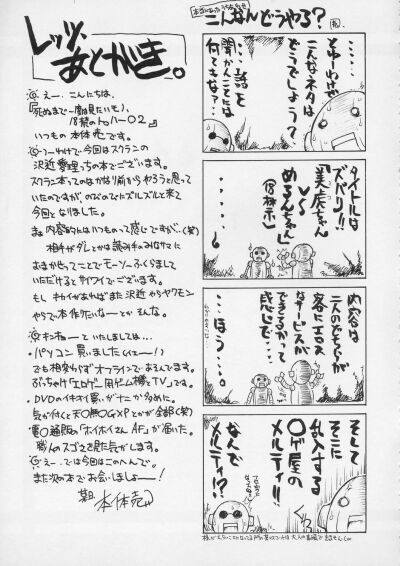 レッツ、
あとがき。
えー、こんにちは。
いつもの本体売です。
つーわけで今回はスクランの
沢近愛理っちの本でございます。
スクラン本ってのはかなり前からやろうと思って
いたのですが、のびのびでズルズルと来て
今回となりました。
まぁ内容的にはいつもの感じですが。(笑)
相手がダレとかは読み手のみなサマに
おまかせってことでモーソーふくらまして
いただけるとサイワイでございます。
もし キカイがあればまた沢近からヤクモン
やらで、本作りたいなーとか。そんな。
といたしましては…
・パソコン買いました(イェー!)
でも相変わらずオフラインであそんでます。
ぶっちゃけ「エロゲー用ゲーム機とTV」です。
・DVDのイキオイ買いがナニか多めた。
気が付くと天〇無〇GXPとかが全部(笑)
・電〇通販の「ホイホイさんAF」が届いた。
職人のスゴさを見た気がします。
えー、では今回はこのへんで。
また次の本でお会いしましょー!
本体売
こんなんどうやろ?
……
そゆわけで
こんなネタは
どうでしょう?
……話を
聞かんことには
何とも…?
タイトルは
ズバリ!!
「美虎ちゃん
VS
めるんちゃん」
……
内容は
二人のどちらが
客にエロス
なサービスが
できるかって
感じで…
……ほう…。
そして
そこに
乱入する
〇ゲ屋の
メルティ!!
なんで
メルティ!?